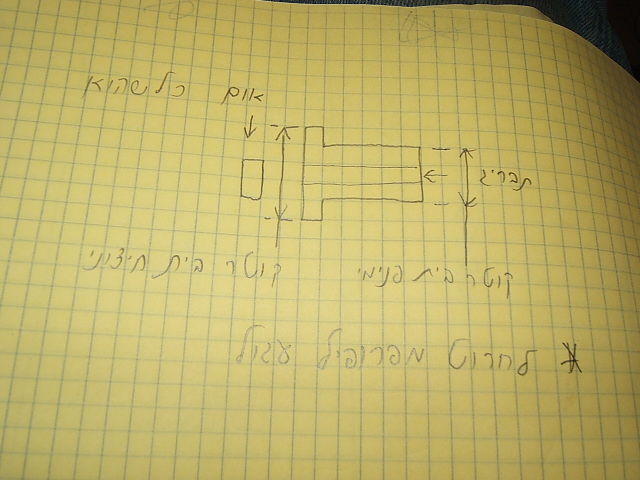 אום כלשהיא
תבריג
קוטר בית חיצוני
קוטר בית פנימי
* לחרוט מפרופיל עגול